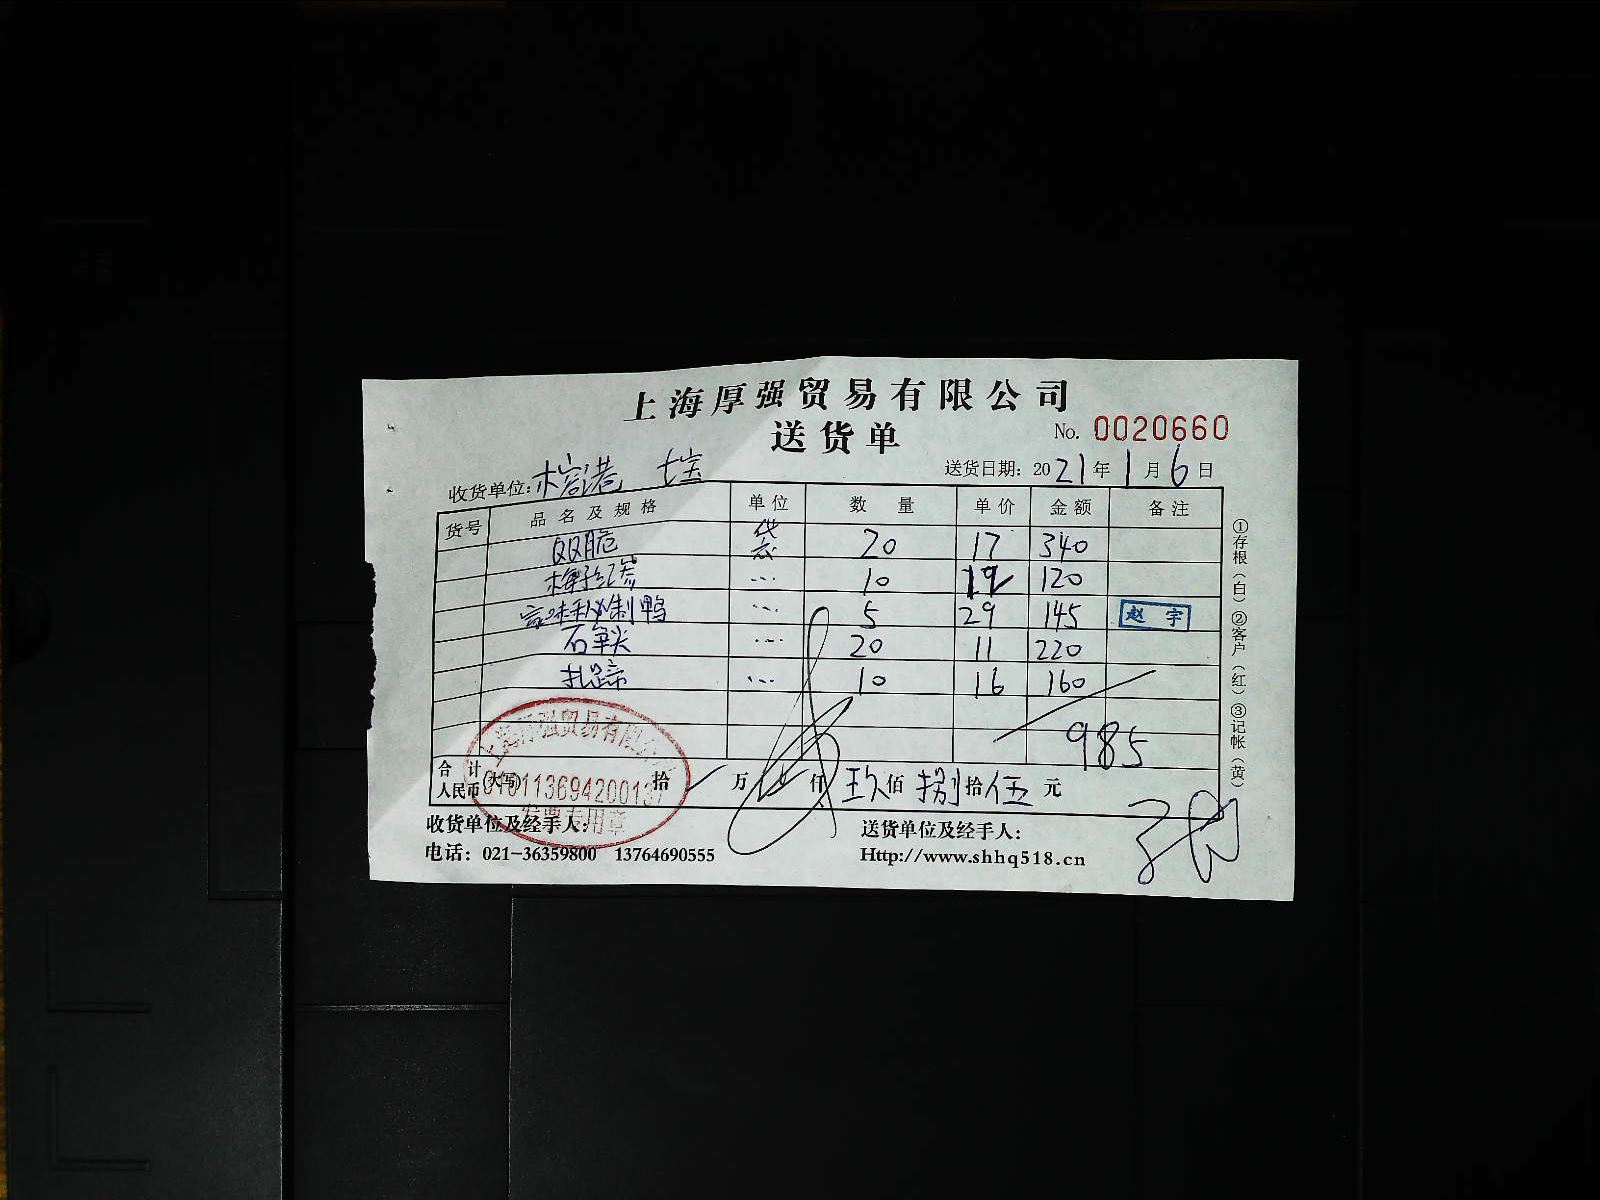 上海厚强贸易有限公司
送货单
No. 0020660
收货单位:榕港
送货日期: 2021年1月6日
货号 品名及规格 单位 数量 单价 金额 备注
QQ脆 袋 20 17 340
梅子红 … 10 12 120
秘制鸭 … 5 29 145 赵宇
石笋尖 … 20 11 220
扎蹄 … 10 16 160
985
合计人民币(大写) 拾 万 仟 玖佰 捌拾 伍元
上海厚强贸易有限公司
发票专用章
收货单位及经手人:
送货单位及经手人:
电话: 021-36359800 13764690555
Http://www.shhq518.cn
①存根(白)②客户(红)③记帐(黄)